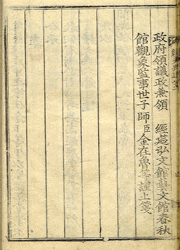 政府領議政兼領 經筵弘文館藝文館春秋
館觀象監事世子師臣金在魯等謹上箋